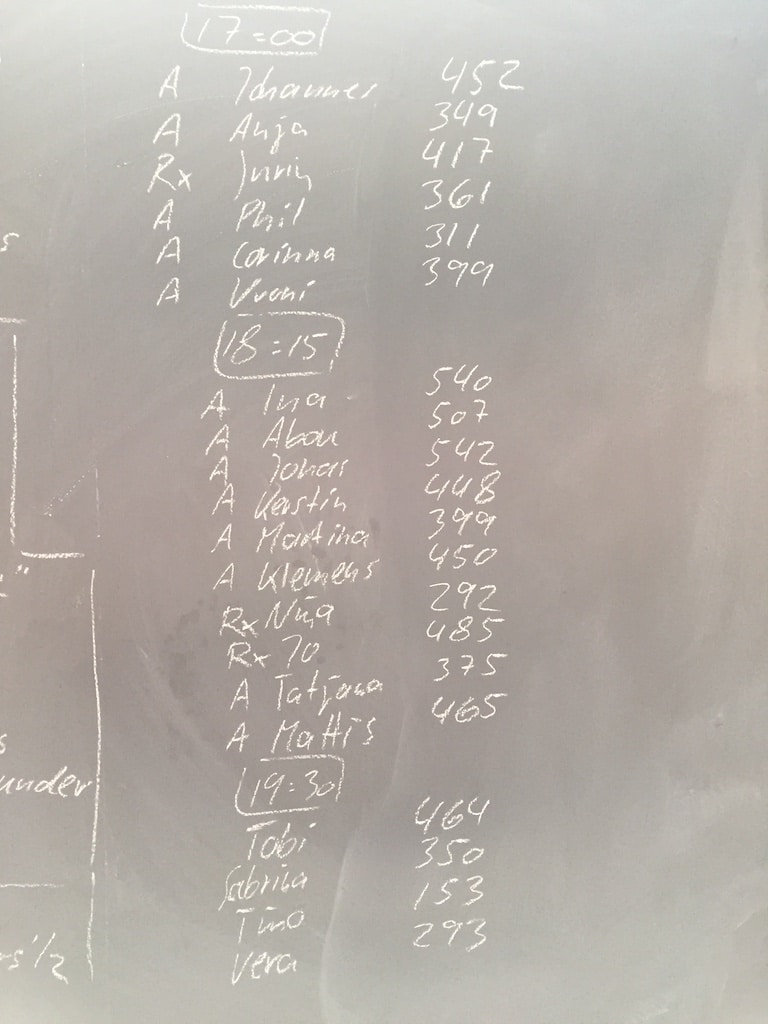 17:00
A Johannes 452
A Anja 349
Rx 417
A Phil 361
A Corinna 311
A Vroni 399
18:15
A Ina 540
A Abou 507
A Jonas 542
A Kerstin 448
A Martina 399
A Klemens 450
Rx Nina 292
Rx Jo 485
A Tatjana 375
A Mattis 465
19:30
Tobi 464
Sabrina 350
Tino 153
Vera 293
s
"
s
under
rs 1/2